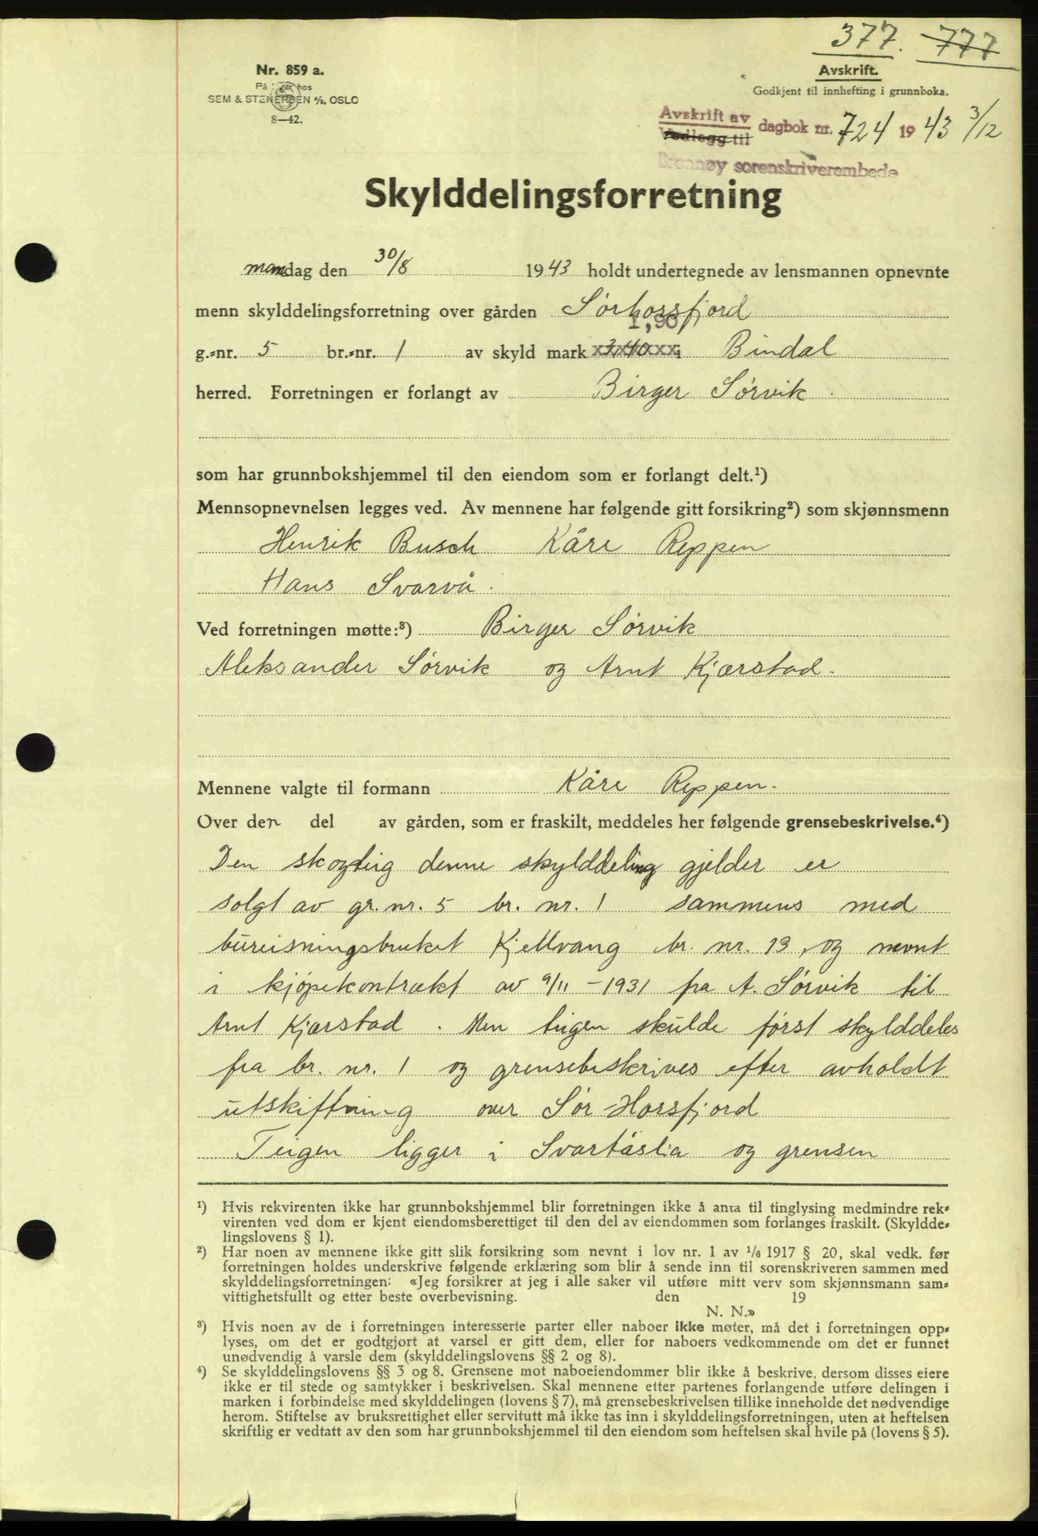 377. 777
Nr. 859 a.
Avskrift.
På lager hos
Godkjent til innhefting i grunnboka.
SEM & STENERSEN A/S, OSLO
8—42.
Avskrift av
Vedlegg til dagbok nr. 724 1943 3/12
Brønnøy sorenskriverembede
Skylddelingsforretning
mandag den 30/8 1943 holdt undertegnede av lensmannen opnevnte
menn skylddelingsforretning over gården Sørhorsfjord
1,90
g.-nr. 5 br.-nr. 1 av skyld mark 3,40 i Bindal
herred. Forretningen er forlangt av Birger Sørvik.
som har grunnbokshjemmel til den eiendom som er forlangt delt.¹)
Mennsopnevnelsen legges ved. Av mennene har følgende gitt forsikring²) som skjønnsmenn
Henrik Busch Kåre Reppen
Hans Svarvå.
Ved forretningen møtte:³) Birger Sørvik
Aleksander Sørvik og Arnt Kjærstad.
Mennene valgte til formann Kåre Reppen.
Over den del av gården, som er fraskilt, meddeles her følgende grensebeskrivelse.⁴)
Den skogteig denne skylddeling gjelder er
solgt av gr. nr. 5 br. nr. 1 sammens med
bureisningsbruket Kjellvang br. nr. 13, og nevnt
i kjøpekontrakt av 9/11 – 1931 fra A. Sørvik til
Arnt Kjærstad. Men teigen skulde først skylddeles
fra br. nr. 1 og grensebeskrives efter avholdt
utskiftning over Sør-Horsfjord
Teigen ligger i Svartåslia og grensen
¹) Hvis rekvirenten ikke har grunnbokshjemmel blir forretningen ikke å anta til tinglysing medmindre rek-
virenten ved dom er kjent eiendomsberettiget til den del av eiendommen som forlanges fraskilt. (Skyldde-
lingslovens § 1).
²) Har noen av mennene ikke gitt slik forsikring som nevnt i lov nr. 1 av 1/6 1917 § 20, skal vedk. før
forretningen holdes underskrive følgende erklæring som blir å sende inn til sorenskriveren sammen med
skylddelingsforretningen: «Jeg forsikrer at jeg i alle saker vil utføre mitt verv som skjønnsmann sam-
vittighetsfullt og etter beste overbevisning. den 19
N. N.»
³) Hvis noen av de i forretningen interesserte parter eller naboer ikke møter, må det i forretningen opp-
lyses, om det er godtgjort at varsel er gitt dem, eller for naboers vedkommende om det er funnet
unødvendig å varsle dem (skylddelingslovens §§ 2 og 8).
⁴) Se skylddelingslovens §§ 3 og 8. Grensene mot naboeiendommer blir ikke å beskrive, dersom disses eiere
ikke er til stede og samtykker i beskrivelsen. Skal mennene etter partenes forlangende utføre delingen i
marken i forbindelse med skylddelingen (lovens § 7), må grensebeskrivelsen tillike inneholde det nødvendige
herom. Stiftelse av bruksrettighet eller servitutt må ikke tas inn i skylddelingsforretningen, uten at heftelsen
skriftlig er vedtatt av den som har grunnbokshjemmel til den eiendom som heftelsen skal hvile på (lovens § 5).